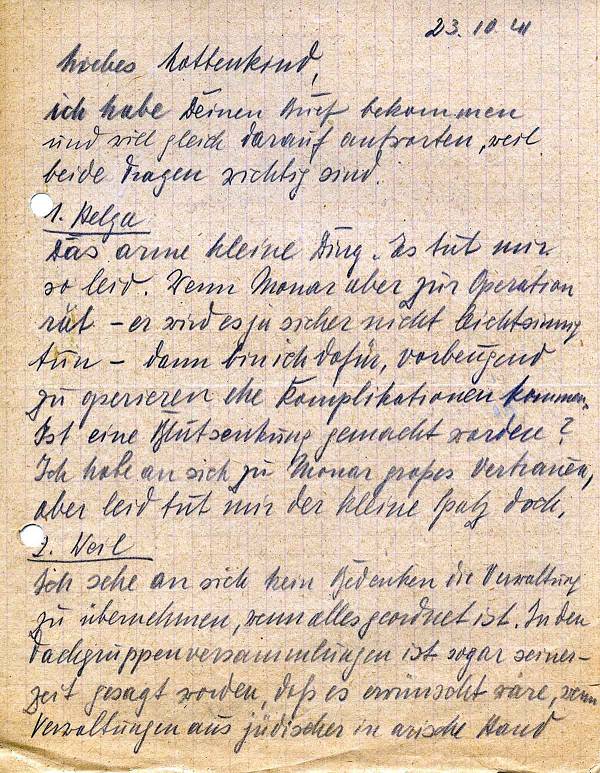 23.10.41
Liebes Lottenkind,
ich habe Deinen Brief bekommen
und will gleich darauf antworten, weil
beide Fragen wichtig sind.
1. Helga
Das arme kleine Ding. Es tut mir
so leid. Wenn Monar aber zur Operation
rät - er wird es ja sicher nicht leichtsinnig
tun - dann bin ich dafür, vorbeugend
zu operieren ehe Komplikationen kommen.
Ist eine Blutsenkung gemacht worden?
Ich habe an sich zu Monar großes Vertrauen,
aber leid tut mir der kleine Spatz doch.
2. Weil
Ich sehe an sich kein Bedenken die Verwaltung
zu übernehmen, wenn alles geordnet ist. In den
Dachgruppenversammlungen ist sogar seiner-
zeit gesagt worden, daß es erwünscht wäre, wenn
Verwaltungen aus jüdischer in arische Hand